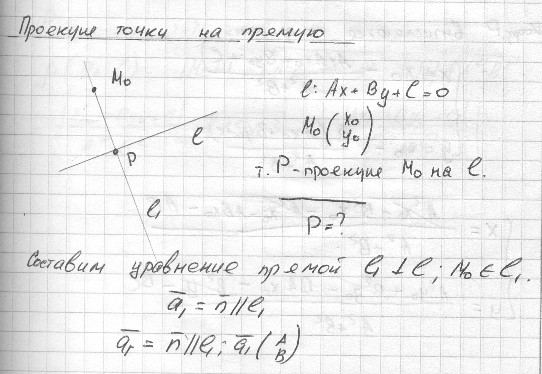 Проекция точки на прямую
M₀
l: Ax + By + C = 0
M₀ (x₀ y₀)
l
P
т. P - проекция M₀ на l.
l₁
P = ?
Составим уравнение прямой l₁ ⊥ l; M₀ ∈ l₁.
a̅₁ = n̅ ∥ l₁
a̅₁ = n̅ ∥ l₁; a̅₁ (A B)